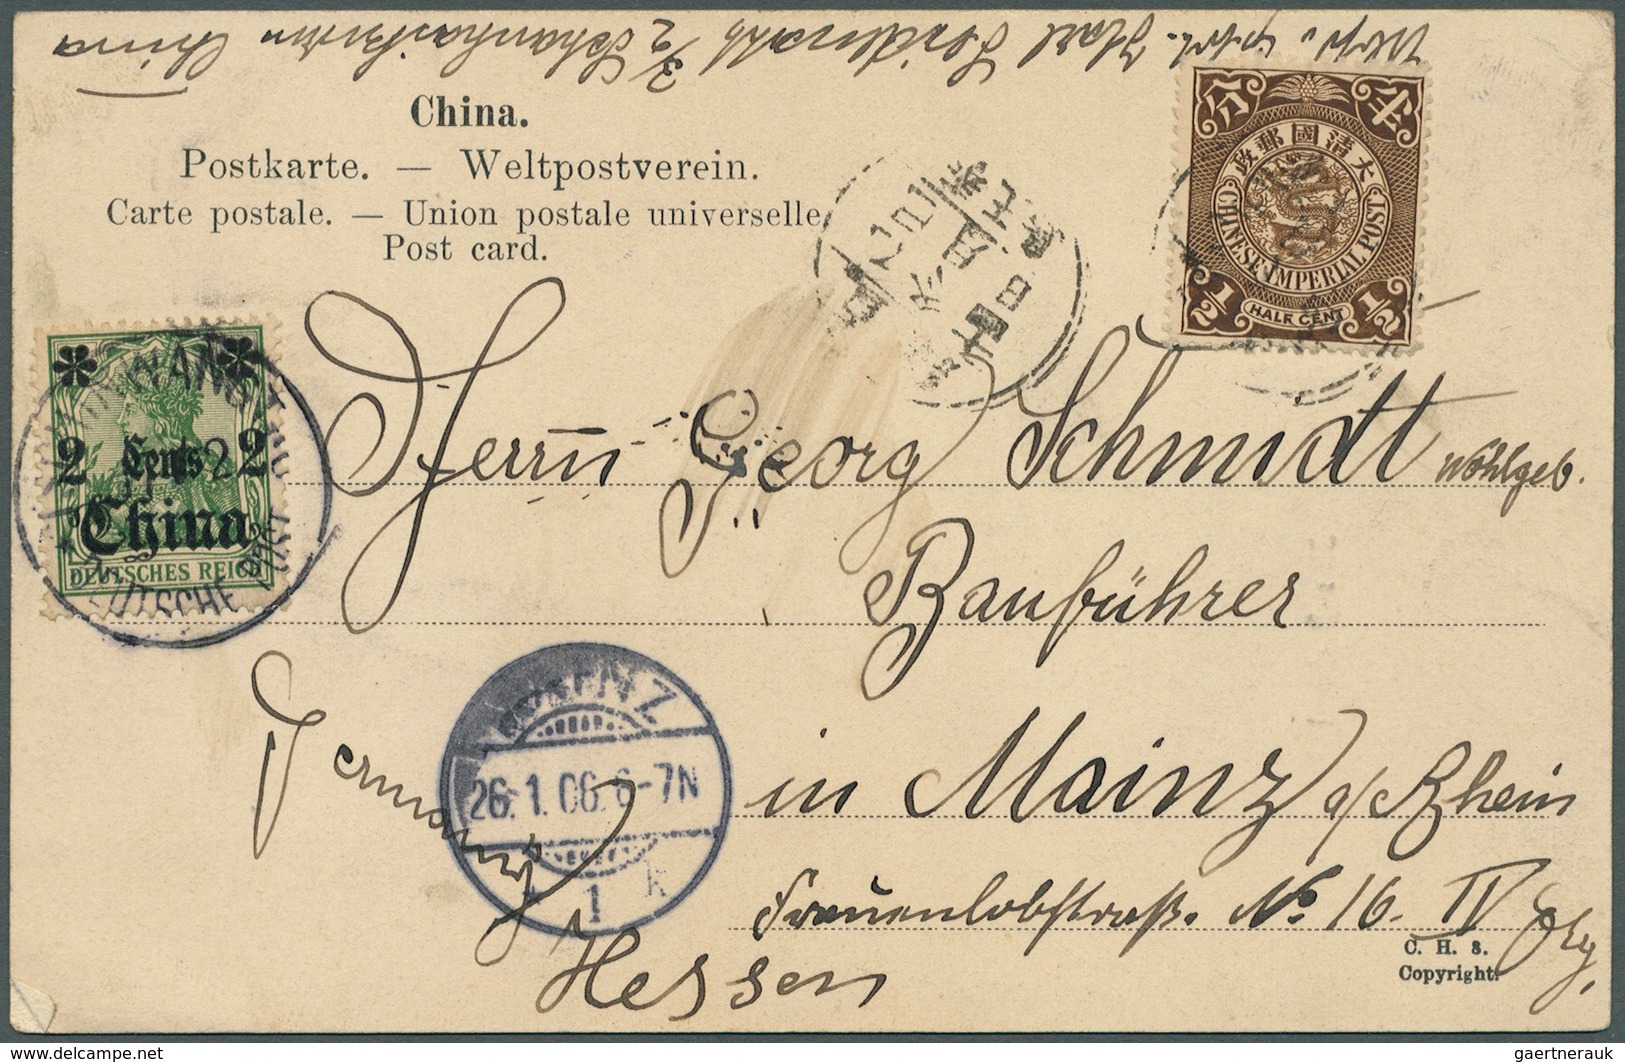 China
China.
Postkarte. — Weltpostverein.
Carte postale. — Union postale universelle
Post card.
分 半
大清國郵政
CHINESE IMPERIAL POST
1/2 HALF CENT 1/2
2 Cents 2
China
DEUTSCHES REICH
DEUTSCHE POST
Herrn Georg Schmidt Wohlgeb.
Bauführer
in Mainz a/Rhein
Frauenlobstraß. No. 16. IV
Germany
Hessen
MAINZ
26.1.06.6-7N
* 1 k
C. H. 8.
Copyright.
delcampe.net
gaertnerauk